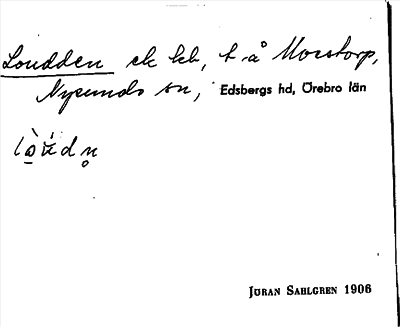 Loudden ck lch, t. å Mosstorp,
Nysunds sn, Edsbergs hd, Örebro län
JÖRAN SAHLGREN 1906